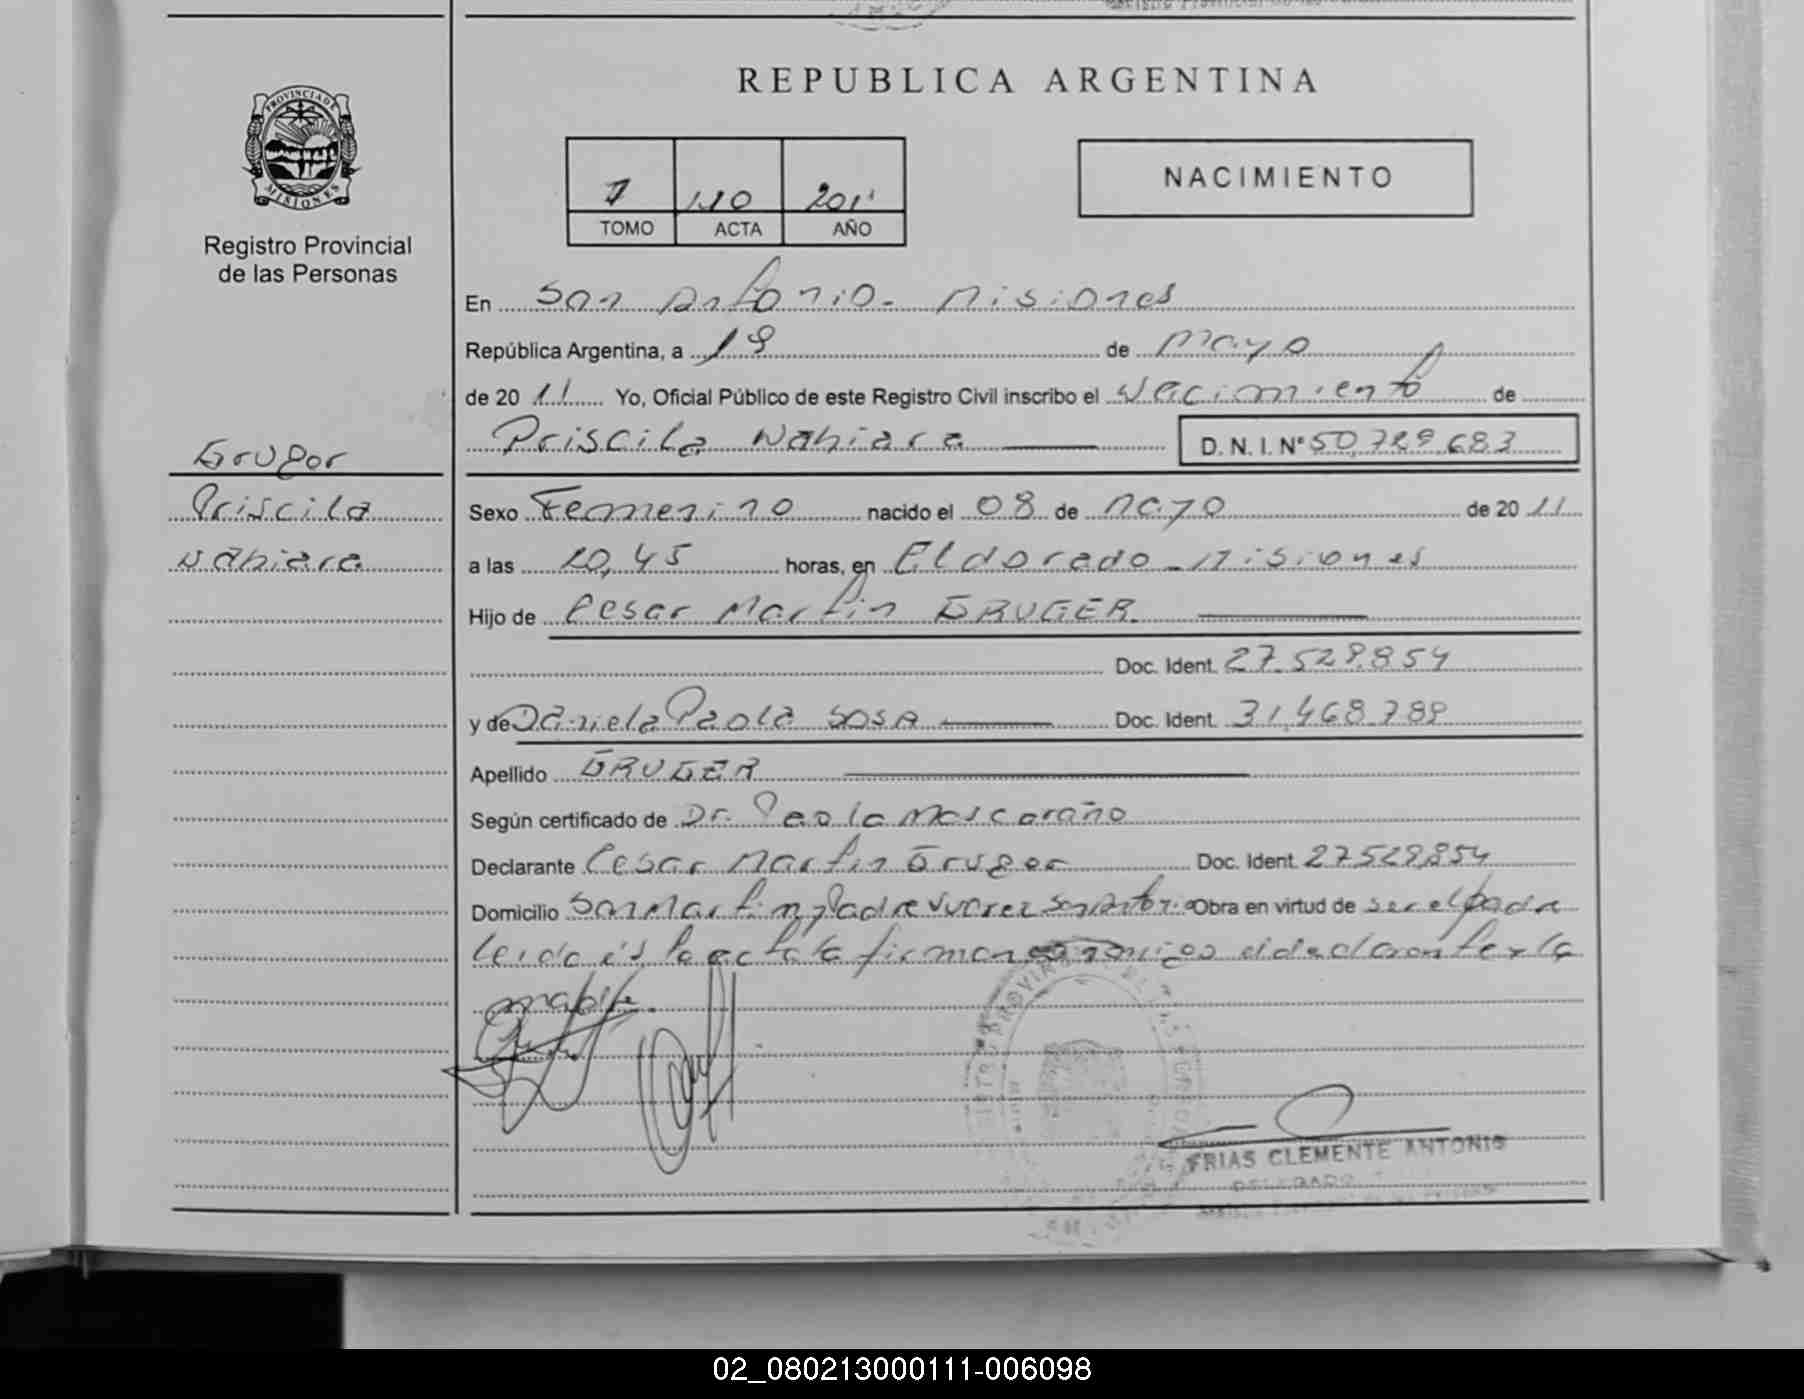 REPUBLICA ARGENTINA
PROVINCIA DE
MISIONES
Registro Provincial
de las Personas
1 110 2011
TOMO ACTA AÑO
NACIMIENTO
En San Antonio - Misiones
República Argentina, a 19 de Mayo
de 20 11 Yo, Oficial Público de este Registro Civil inscribo el Nacimiento de
Priscila Nahiara D. N. I. Nº 50.789.683
Gruger
Priscila
Nahiara
Sexo Femenino nacido el 08 de Mayo de 20 11
a las 10,45 horas, en Eldorado - Misiones
Hijo de Cesar Martin GRUGER
Doc. Ident. 27.529.854
y de Daniela Paola SOSA Doc. Ident. 31.468.789
Apellido GRUGER
Según certificado de Dr. Paola Mascaraño
Declarante Cesar Martin Gruger Doc. Ident. 27.529.854
Domicilio San Martin y Padre San Antonio Obra en virtud de ser el padre
leida el acta la firman conmigo el declarante y la
madre.
FRIAS CLEMENTE ANTONIO
DELEGADO